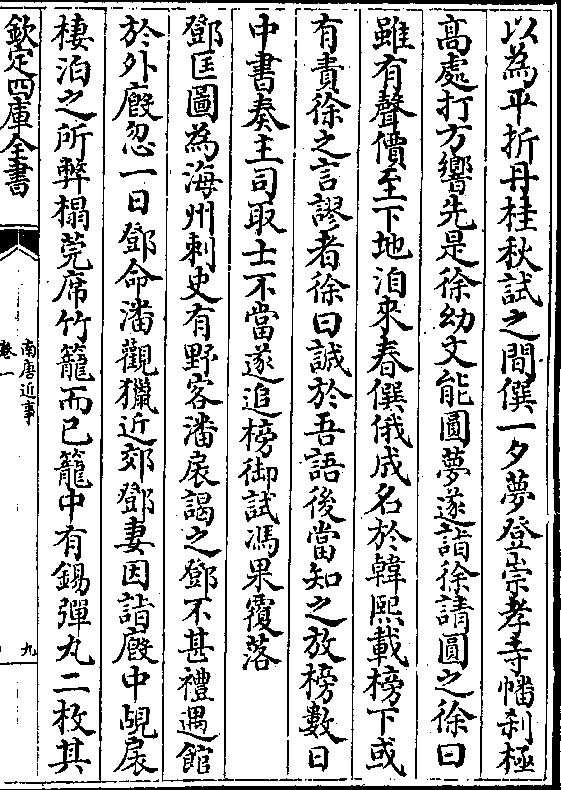 以為平折丹桂秋試之間僎一夕夢登崇孝寺幡刹極
高處打方響先是徐幼文能圓夢遂詣徐請圓之徐曰
雖有聲價至下地洎來春僎俄成名於韓熙載榜下或
有責徐之言謬者徐曰誠於吾語後當知之放榜數日
中書奏主司取士不當遂追榜御試馮果覆落
鄧匡圖為海州刺史有野客潘扆謁之鄧不甚禮遇館
於外廐忽一日鄧命潘觀獵近郊鄧妻因詣廐中覘扆
棲泊之所弊榻莞席竹籠而已籠中有錫彈丸二枚其
欽定四庫全書
南唐近事
卷一
九